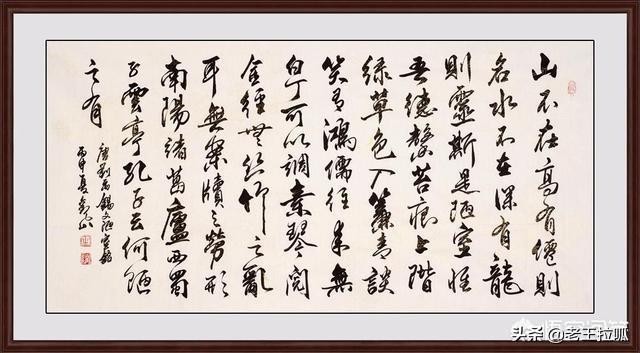 山不在高有僊則
名水不在深有龍
則靈斯是陋室惟
吾德馨苔痕上階
綠草色入簾青談
笑有鴻儒往來無
白丁可以調素琴閱
金經無絲竹之亂
耳無案牘之勞形
南陽諸葛廬西蜀
子雲亭孔子云何陋
之有
唐劉禹錫文陋室銘
丙申夏
悟空问答
头条@老王拉呱